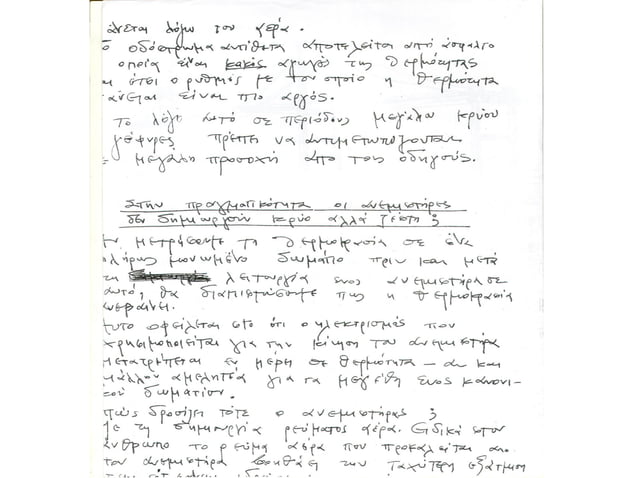 άνεται λόγω του αέρα.
ο οδόστρωμα αντίθετα αποτελείται από άσφαλτο
οποία είναι κακός αγωγός της θερμότητας
αι έτσι ο ρυθμός με τον οποίο η θερμότητα
άνεται είναι πιο αργός.
Για το λόγο αυτό σε περιόδους μεγάλου κρύου
γέφυρες πρέπει να αντιμετωπίζονται
ε μεγάλη προσοχή από τους οδηγούς.
Στην πραγματικότητα οι ανεμιστήρες
δεν δημιουργούν κρύο αλλά ζέστη;
ν μετρήσουμε τη θερμοκρασία σε ένα
λήρως μονωμένο δωμάτιο πριν και μετά
τη λειτουργία ενός ανεμιστήρα σε
αυτό, θα διαπιστώσουμε πως η θερμοκρασία
ανεβαίνει.
Αυτό οφείλεται στο ότι ο ηλεκτρισμός που
χρησιμοποιείται για την κίνηση του ανεμιστήρα
μετατρέπεται εν μέρει σε θερμότητα – αν και
μάλλον αμελητέα για τα μεγέθη ενός κανονι-
κού δωματίου.
Πώς δροσίζει τότε ο ανεμιστήρας;
Με τη δημιουργία ρεύματος αέρα. Ειδικά στον
άνθρωπο το ρεύμα αέρα που προκαλείται απο
τον ανεμιστήρα βοηθάει την ταχύτερη εξάτμιση